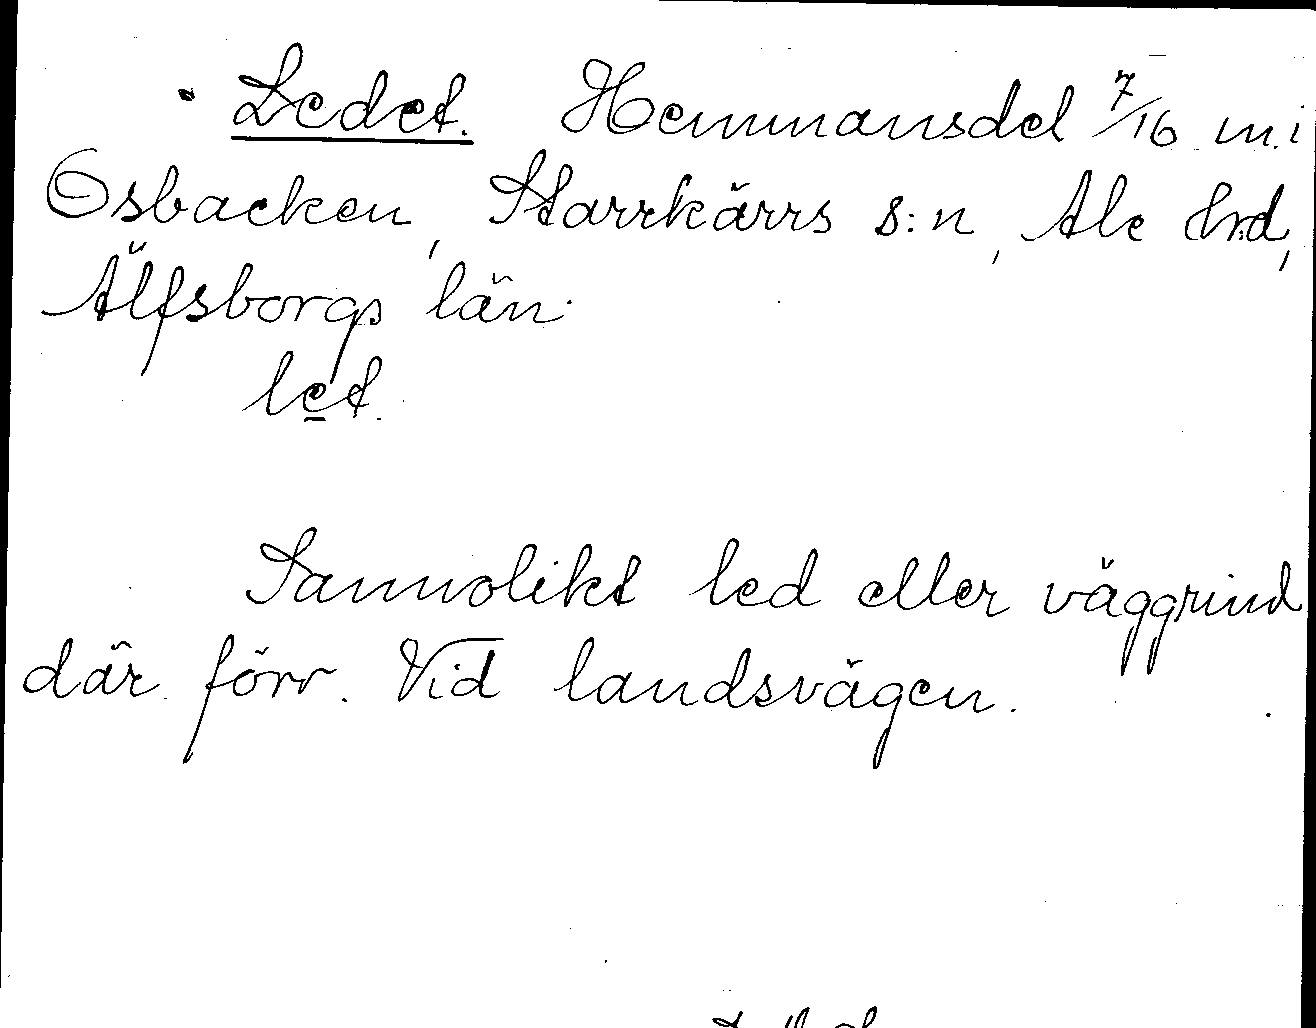 Ledet. Hemmansdel 7/16 m. i
Osbacken, Starrkärrs s:n, Ale hrd,
Älfsborgs län.
let.
Sannolikt led eller väggrind
där förr. Vid landsvägen.